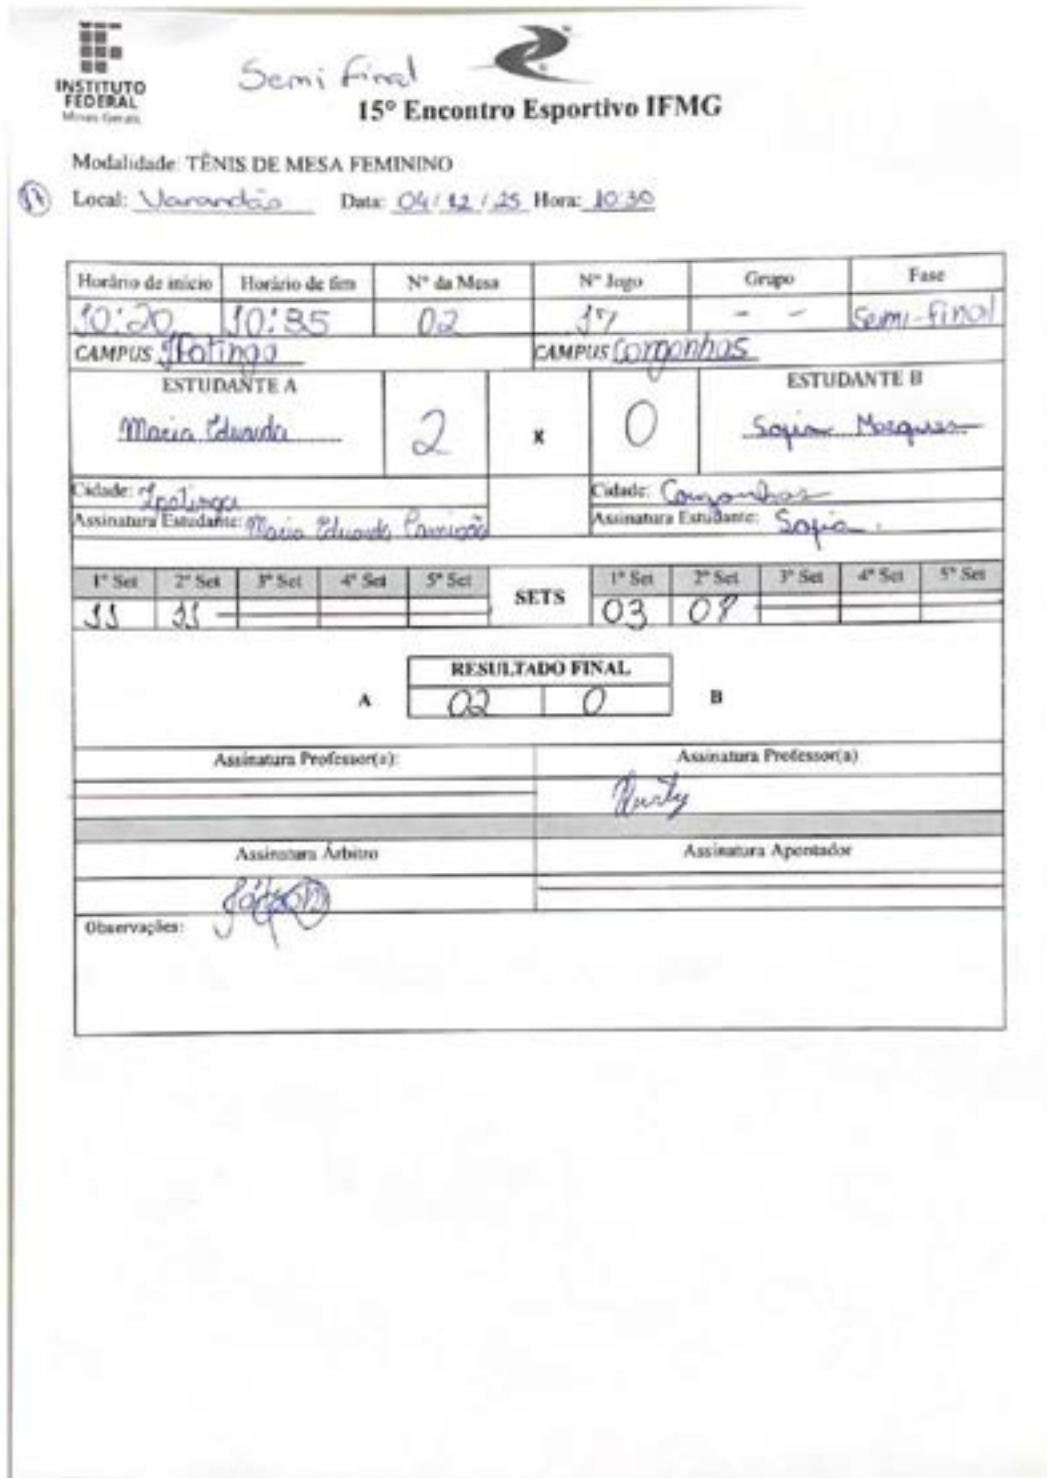 INSTITUTO
FEDERAL
Minas Gerais
Semi Final
15º Encontro Esportivo IFMG
Modalidade: TÊNIS DE MESA FEMININO
17 Local: Varandão Data: 04/12/25 Hora: 10:30
Horário de início Horário de fim Nº da Mesa Nº Jogo Grupo Fase
10:20 10:35 02 17 - - Semi-final
CAMPUS Ipatinga CAMPUS Congonhas
ESTUDANTE A ESTUDANTE B
Maria Eduarda 2 x 0 Sofia Marques
Cidade: Ipatinga Cidade: Congonhas
Assinatura Estudante: Maria Eduarda Assinatura Estudante: Sofia.
1º Set 2º Set 3º Set 4º Set 5º Set SETS 1º Set 2º Set 3º Set 4º Set 5º Set
11 11 03 08
RESULTADO FINAL
A 02 0 B
Assinatura Professor(a): Assinatura Professor(a)
Assinatura Árbitro Assinatura Apontador
Observações: